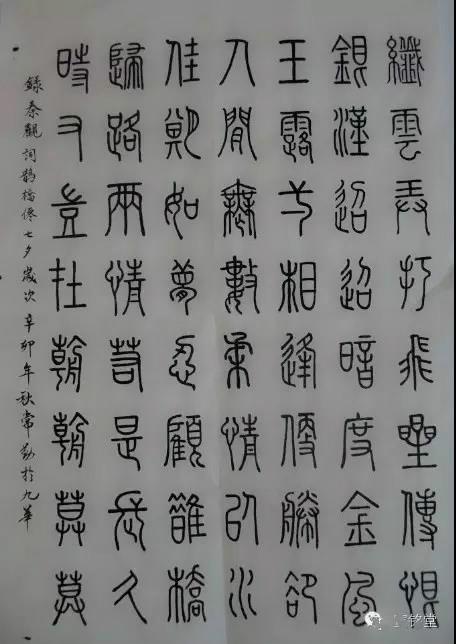 纖雲弄巧飛星傳恨
銀漢迢迢暗度金風
玉露一相逢便勝卻
人間無數柔情似水
佳期如夢忍顧鵲橋
歸路兩情若是長久
時又豈在朝朝莫莫
錄秦觀詞鵲橋僊七夕歲次辛卯年秋常於九華
铭堂